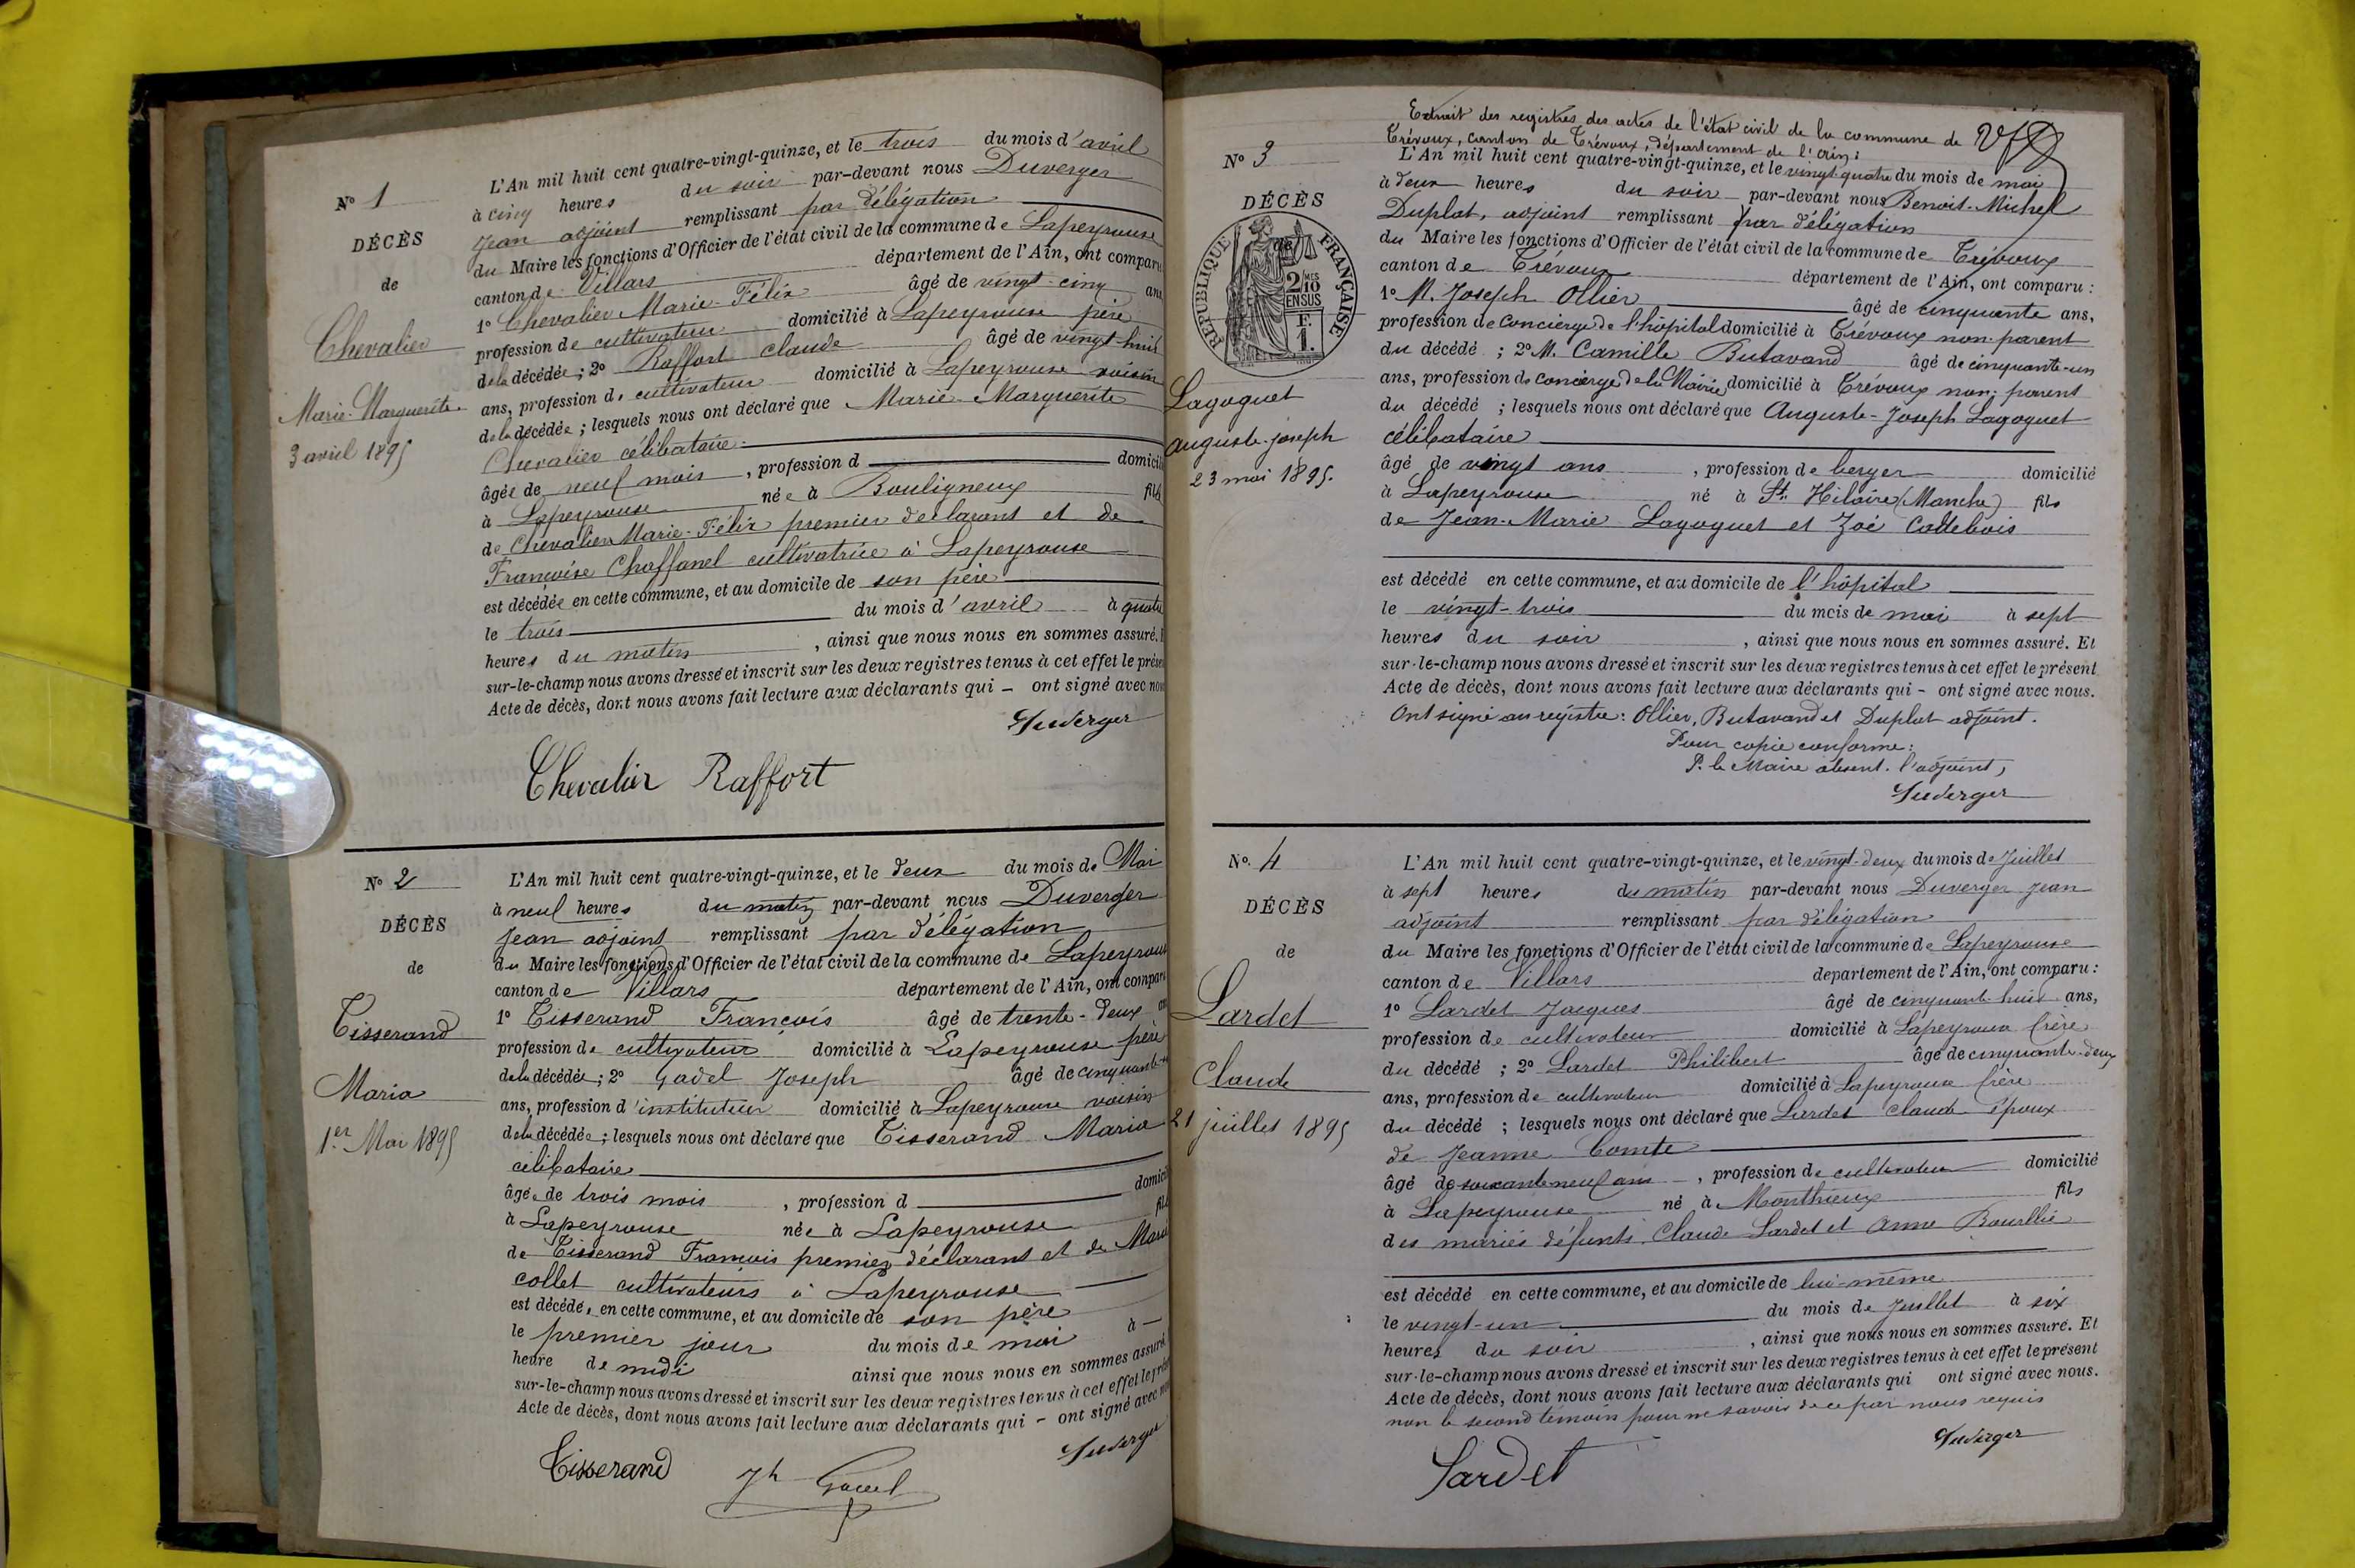 N° 1
DÉCÈS
de
Chevalier
Marie-Marguerite
3 avril 1895
L'An mil huit cent quatre-vingt-quinze, et le trois du mois d'avril
à cinq heures du soir par-devant nous Duverger
Jean adjoint remplissant par délégation
du Maire les fonctions d'Officier de l'état civil de la commune de Lapeyrouse
canton de Villars département de l'Ain, ont comparu
1° Chevalier Marie-Félix âgé de vingt-cinq ans
profession de cultivateur domicilié à Lapeyrouse père
de la décédée ; 2° Raffort claude âgé de vingt-huit
ans, profession de cultivateur domicilié à Lapeyrouse voisin
de la décédée ; lesquels nous ont déclaré que Marie-Marguerite
Chevalier célibataire
âgée de neuf mois , profession d domicili
à Lapeyrouse née à Bouligneux fils
de Chevalier Marie-Félix premier déclarant et de
Françoise Chaffanel cultivatrice à Lapeyrouse
est décédée en cette commune, et au domicile de son père
le trois du mois d'avril à quatre
heures du matin , ainsi que nous nous en sommes assuré.
sur-le-champ nous avons dressé et inscrit sur les deux registres tenus à cet effet le présen
Acte de décès, dont nous avons fait lecture aux déclarants qui - ont signé avec nous
Duverger
Chevalier Raffort
N° 2
DÉCÈS
de
Tisserand
Maria
1er Mai 1895
L'An mil huit cent quatre-vingt-quinze, et le deux du mois de Mai
à neuf heures du matin par-devant nous Duverger
Jean adjoint remplissant par délégation
du Maire les fonctions d'Officier de l'état civil de la commune de Lapeyrouse
canton de Villars département de l'Ain, ont comparu
1° Tisserand François âgé de trente-deux an
profession de cultivateur domicilié à Lapeyrouse père
de la décédée ; 2° Gadel Joseph âgé de cinquante
ans, profession d'instituteur domicilié à Lapeyrouse voisin
de la décédée ; lesquels nous ont déclaré que Tisserand Maria
célibataire
âgée de trois mois , profession d domicil
à Lapeyrouse née à Lapeyrouse fil
de Tisserand François premier déclarant et de Marie
collet cultivateurs à Lapeyrouse
est décédée en cette commune, et au domicile de son père
le premier jour du mois de mai à —
heure de midi ainsi que nous nous en sommes assuré
sur-le-champ nous avons dressé et inscrit sur les deux registres tenus à cet effet le pré
Acte de décès, dont nous avons fait lecture aux déclarants qui - ont signé avec
Duverger
Tisserand Jh Gadel
Extrait des registres des actes de l'état civil de la commune de
Trévoux, canton de Trévoux, département de l'Ain :
N° 3
DÉCÈS
de
RÉPUBLIQUE FRANÇAISE
2/10 MES
EN SUS
F.
1.
Lagoguet
auguste-joseph
23 mai 1895.
L'An mil huit cent quatre-vingt-quinze, et le vingt-quatre du mois de mai
à deux heures du soir par-devant nous Benoit-Michel
Duplat, adjoint remplissant par délégation
du Maire les fonctions d'Officier de l'état civil de la commune de Trévoux
canton de Trévoux département de l'Ain, ont comparu :
1° M. Joseph Ollier âgé de cinquante ans,
profession de Concierge de l'hôpital domicilié à Trévoux non parent
du décédé ; 2° M. Camille Butavand âgé de cinquante-un
ans, profession de concierge de la Mairie domicilié à Trévoux non parent
du décédé ; lesquels nous ont déclaré que Auguste-Joseph Lagoguet
célibataire
âgé de vingt ans , profession de berger domicilié
à Lapeyrouse né à St. Hilaire (Manche) fils
de Jean-Marie Lagoguet et Zoé Costebois
est décédé en cette commune, et au domicile de l'hôpital
le vingt-trois du mois de mai à sept
heures du soir , ainsi que nous nous en sommes assuré. Et
sur-le-champ nous avons dressé et inscrit sur les deux registres tenus à cet effet le présent
Acte de décès, dont nous avons fait lecture aux déclarants qui - ont signé avec nous.
Ont signé au registre : Ollier, Butavand et Duplat adjoint.
Pour copie conforme :
P. le Maire absent. l'adjoint,
Duverger
N° 4
DÉCÈS
de
Lardet
Claude
21 juillet 1895
L'An mil huit cent quatre-vingt-quinze, et le vingt-deux du mois de Juillet
à sept heures du matin par-devant nous Duverger Jean
adjoint remplissant par délégation
du Maire les fonctions d'Officier de l'état civil de la commune de Lapeyrouse
canton de Villars département de l'Ain, ont comparu :
1° Lardet Jacques âgé de cinquante-huit ans,
profession de cultivateur domicilié à Lapeyrouse frère
du décédé ; 2° Lardet Philibert âgé de cinquante-deux
ans, profession de cultivateur domicilié à Lapeyrouse frère
du décédé ; lesquels nous ont déclaré que Lardet claude époux
de Jeanne Comte
âgé de soixante neuf ans , profession de cultivateur domicilié
à Lapeyrouse né à Monthieux fils
des mariés défunts Claude Lardet et Anne Bourllié
est décédé en cette commune, et au domicile de lui-même
le vingt-un du mois de Juillet à six
heures du soir , ainsi que nous nous en sommes assuré. Et
sur-le-champ nous avons dressé et inscrit sur les deux registres tenus à cet effet le présent
Acte de décès, dont nous avons fait lecture aux déclarants qui ont signé avec nous.
non le second témoin pour ne savoir de ce par nous requis
Duverger
Lardet